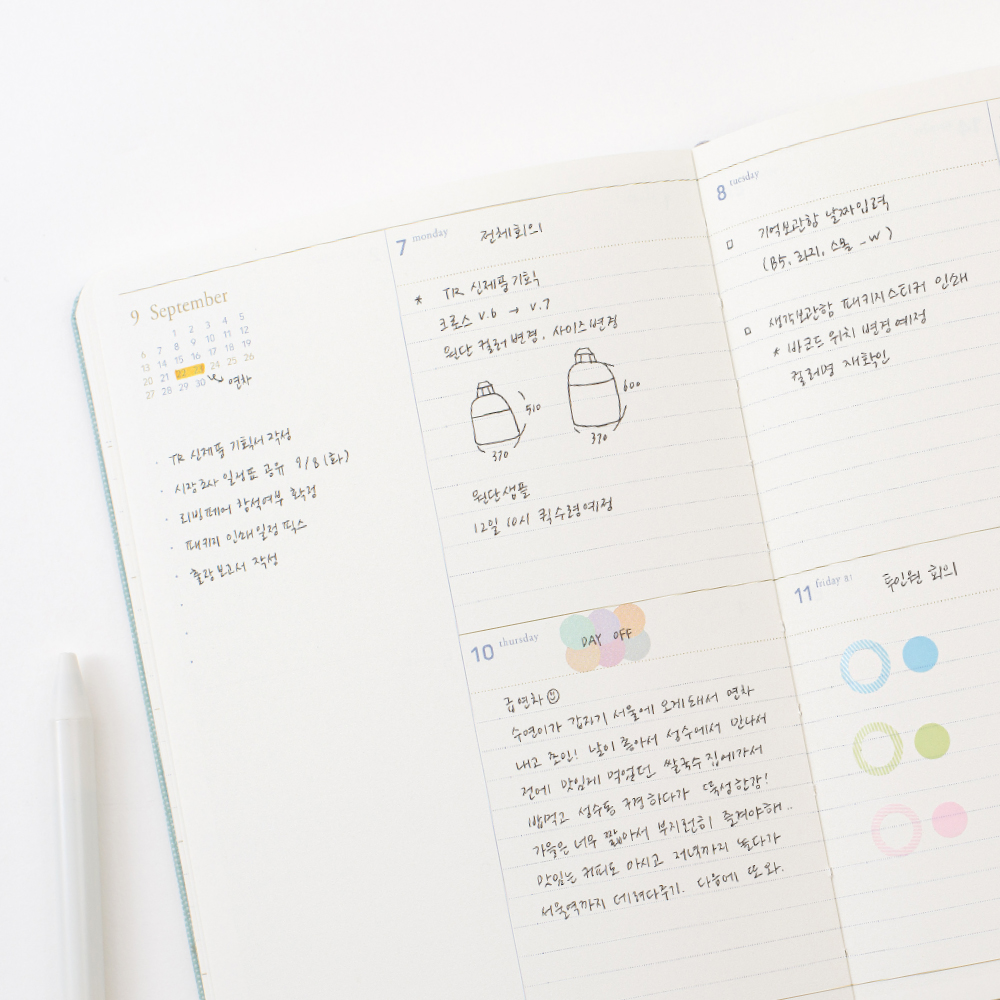 9 September
1 2 3 4 5
6 7 8 9 10 11 12
13 14 15 16 17 18 19
20 21 22 23 24 25 26
27 28 29 30
연차
· TR 신제품 기획서 작성
· 시장조사 일정표 공유 9/8(화)
· 리빙페어 참석여부 확정
· 패키지 인쇄일정 픽스
· 출장보고서 작성
7 monday 전체회의
* TR 신제품기획
크로스 v.6 → v.7
원단 컬러변경, 사이즈변경
510
370
600
370
원단샘플
12일 10시 퀵수령예정
8 tuesday
□ 기억보관함 날짜입력
(B5, 라지, 스몰 -W)
□ 생각보관함 패키지스티커 인쇄
* 바코드위치 변경예정
컬러명 재확인
10 thursday DAY OFF
급연차
수연이가 갑자기 서울에 오게돼서 연차
내고 쪼인! 날이 좋아서 성수에서 만나서
전에 맛있게 먹었던 쌀국수집에가서
밥먹고 성수동 구경하다가 뚝섬한강!
가을은 너무 짧아서 부지런히 즐겨야해..
맛있는 커피도 마시고 저녁까지 놀다가
서울역까지 데려다주기. 다음에 또 와.
11 friday 회의